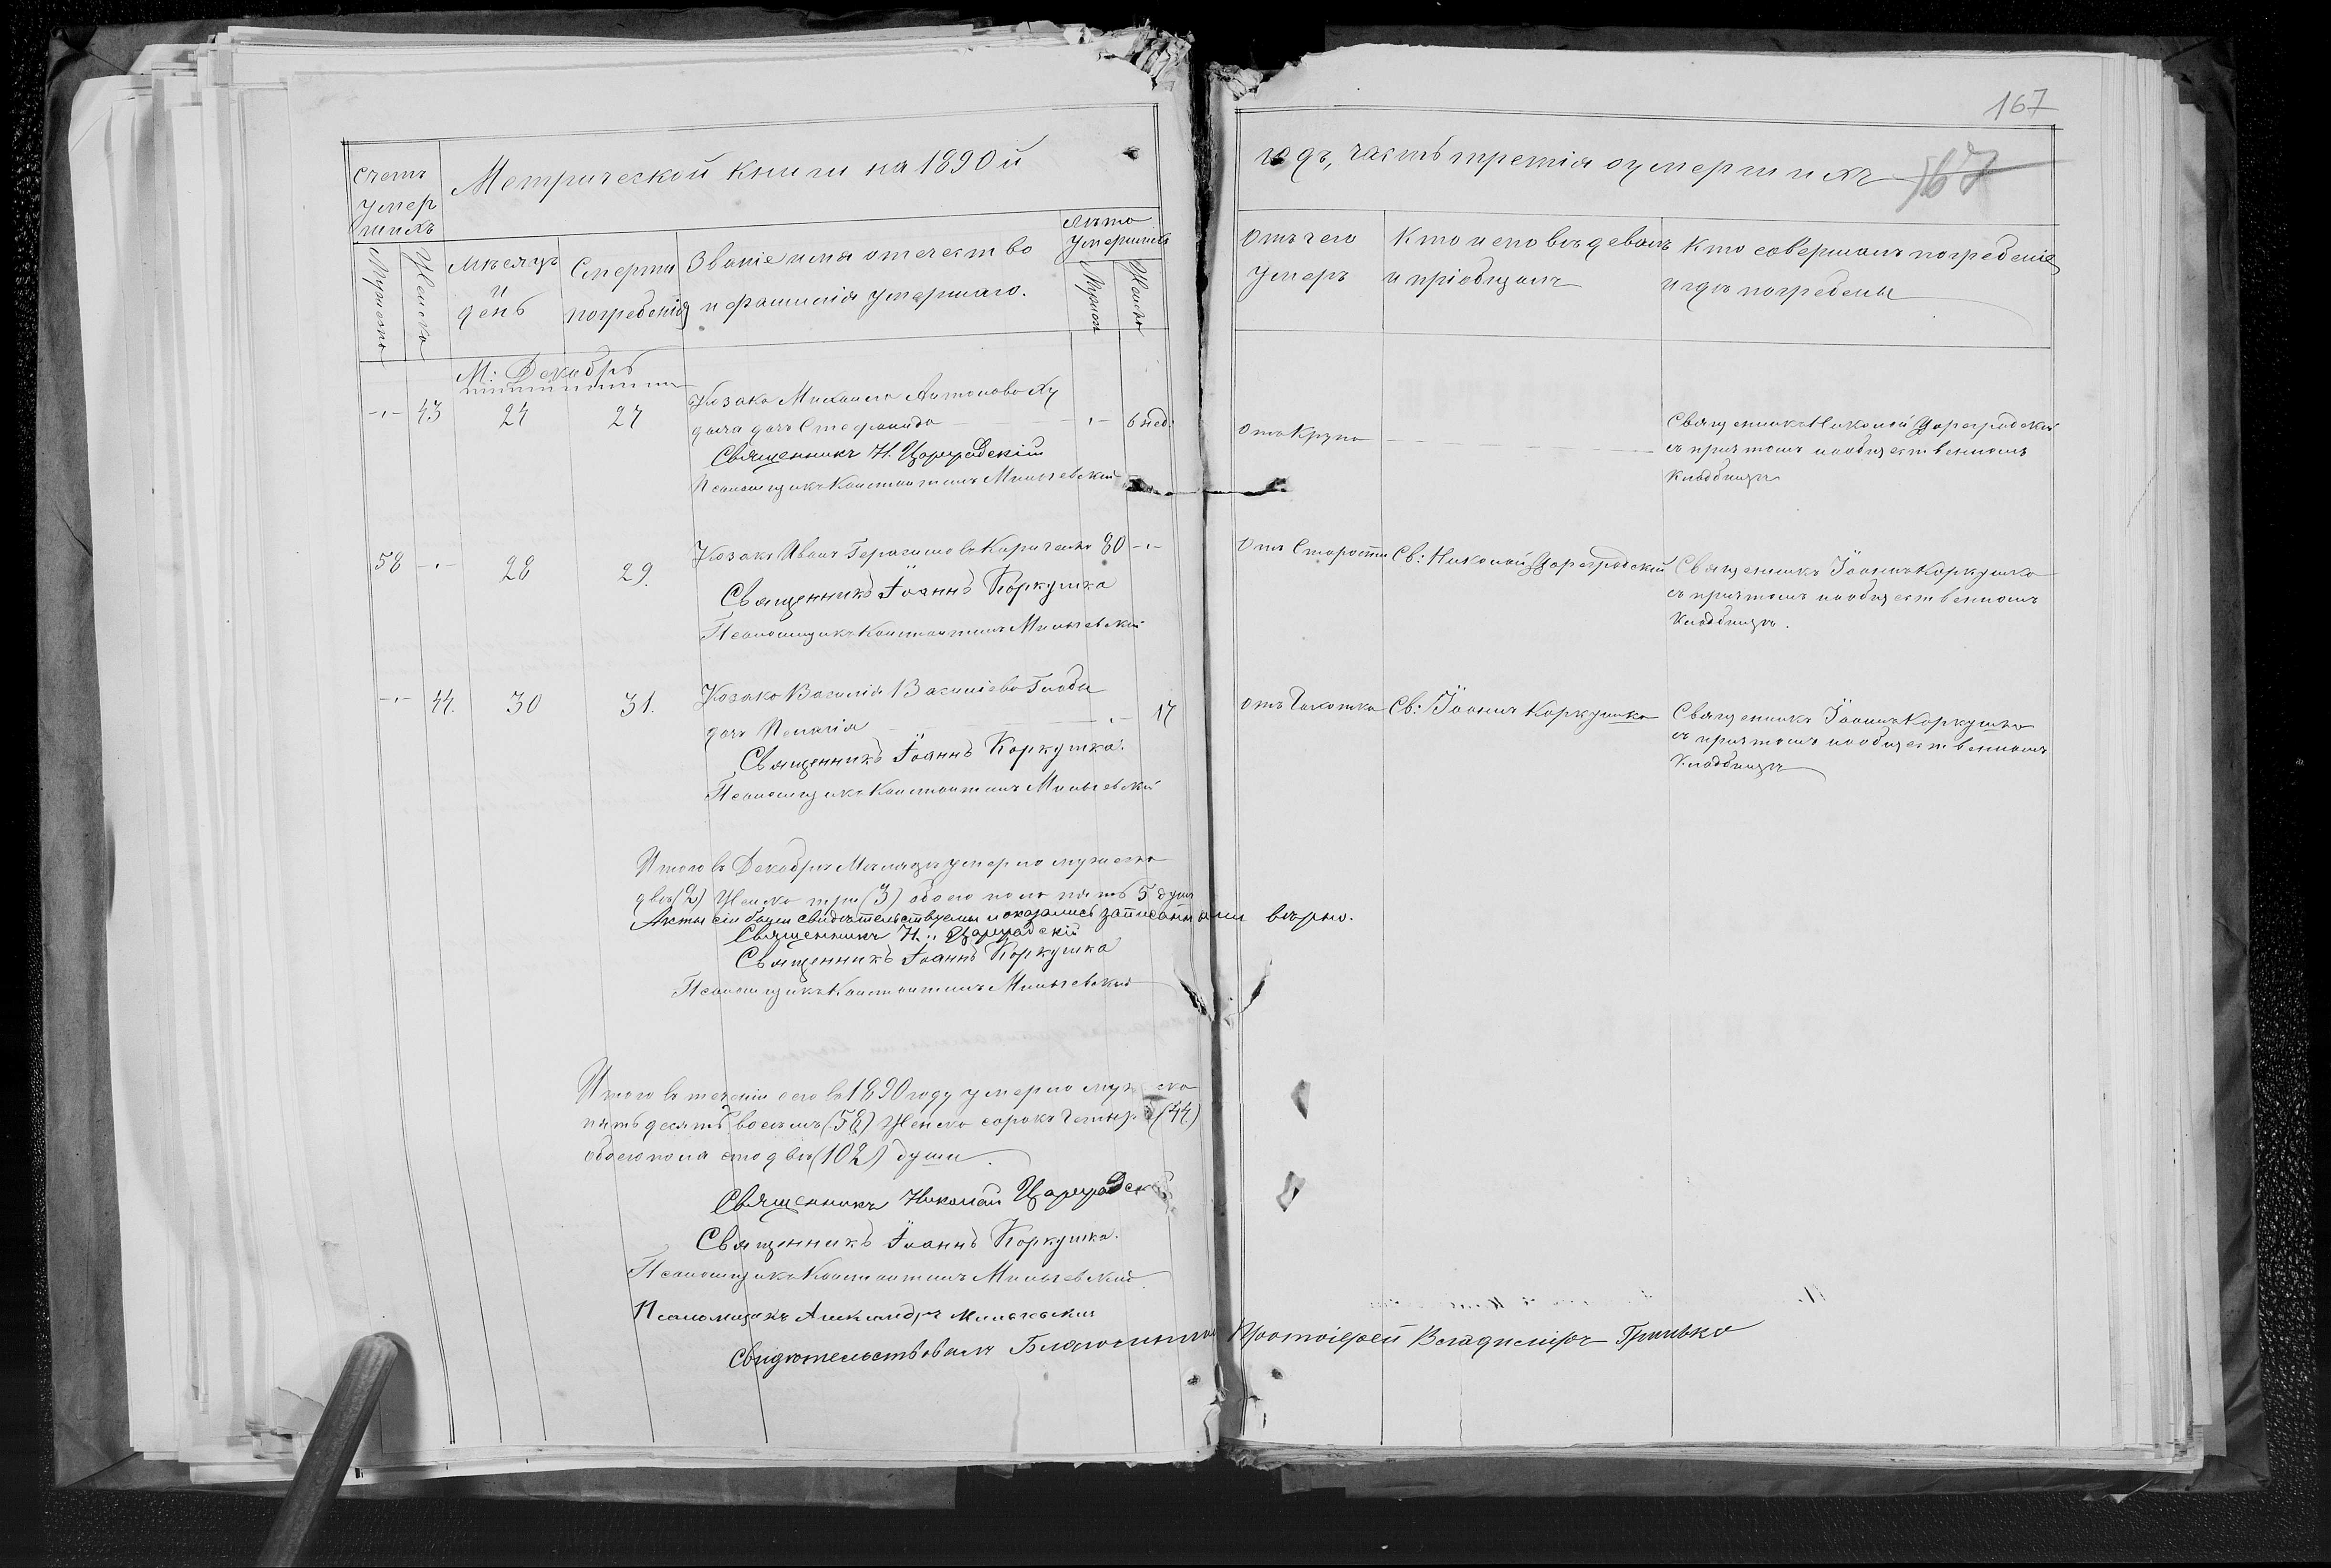 167
Счетъ
умер
шихъ
Метрической книги на 1890й
годъ, часть третія о умершихъ
167
Мужеска
Женска
Мѣсяцъ
и
день
Смерти
погребенія
Званіе имя отечество
и фамилія умершаго.
Лѣта
умершихъ
Мужск
Женск
Отъ чего
умеръ
Кто исповѣдевалъ
и пріобщалъ
Кто совершалъ погребеніе
и гдѣ погребены
М: Декабрь
43 24 27 Козака Михаила Антонова Ху
дача дочь Стефанида 6 нед.
Священникъ Н. Цареградскій
Псаломщикъ Константинъ Мильгевскій
отъ Крупа
Священникъ Николай Цареградскій
съ причтомъ на общественномъ
кладбищѣ
58 28 29. Козакъ Иванъ Герасимовъ Кириченко 80
Священникъ Іоаннъ Коркушка
Псаломщикъ Константинъ Мильгевскій
Отъ Старости Св: Николай Цареградскій Священникъ Іоаннъ Коркушка
съ причтомъ на общественномъ
кладбищѣ.
44. 30 31. Козака Василія Василіева Глоба
дочь Пелагія 17
Священникъ Іоаннъ Коркушка.
Псаломщикъ Константинъ Мильгевскій
отъ Чахотка Св: Іоаннъ Коркушка Священникъ Іоаннъ Коркушка
съ причтомъ на общественномъ
кладбищѣ
Итого въ Декабрѣ Мѣсяцѣ умерло мужеска
двѣ (2) Женска три (3) обоего пола пять 5 душъ
Акты сіи были свидѣтельствуемы и оказались записанными вѣрно.
Священникъ Н. Цареградскій
Священникъ Іоаннъ Коркушка
Псаломщикъ Константинъ Мильгевскій
Итого въ теченіи сего въ 1890 году умерло мужеска
пятьдесятъ восемъ (58) Женска сорокъ четыре (44)
обоего пола сто двѣ (102) души.
Священникъ Николай Цареградск
Священникъ Іоаннъ Коркушка.
Псаломщикъ Константинъ Мильгевскій.
Псаломщикъ Александръ Мильгевскій
Свидѣтельствовалъ Благочинный Протоіерей Владиміръ Гринько